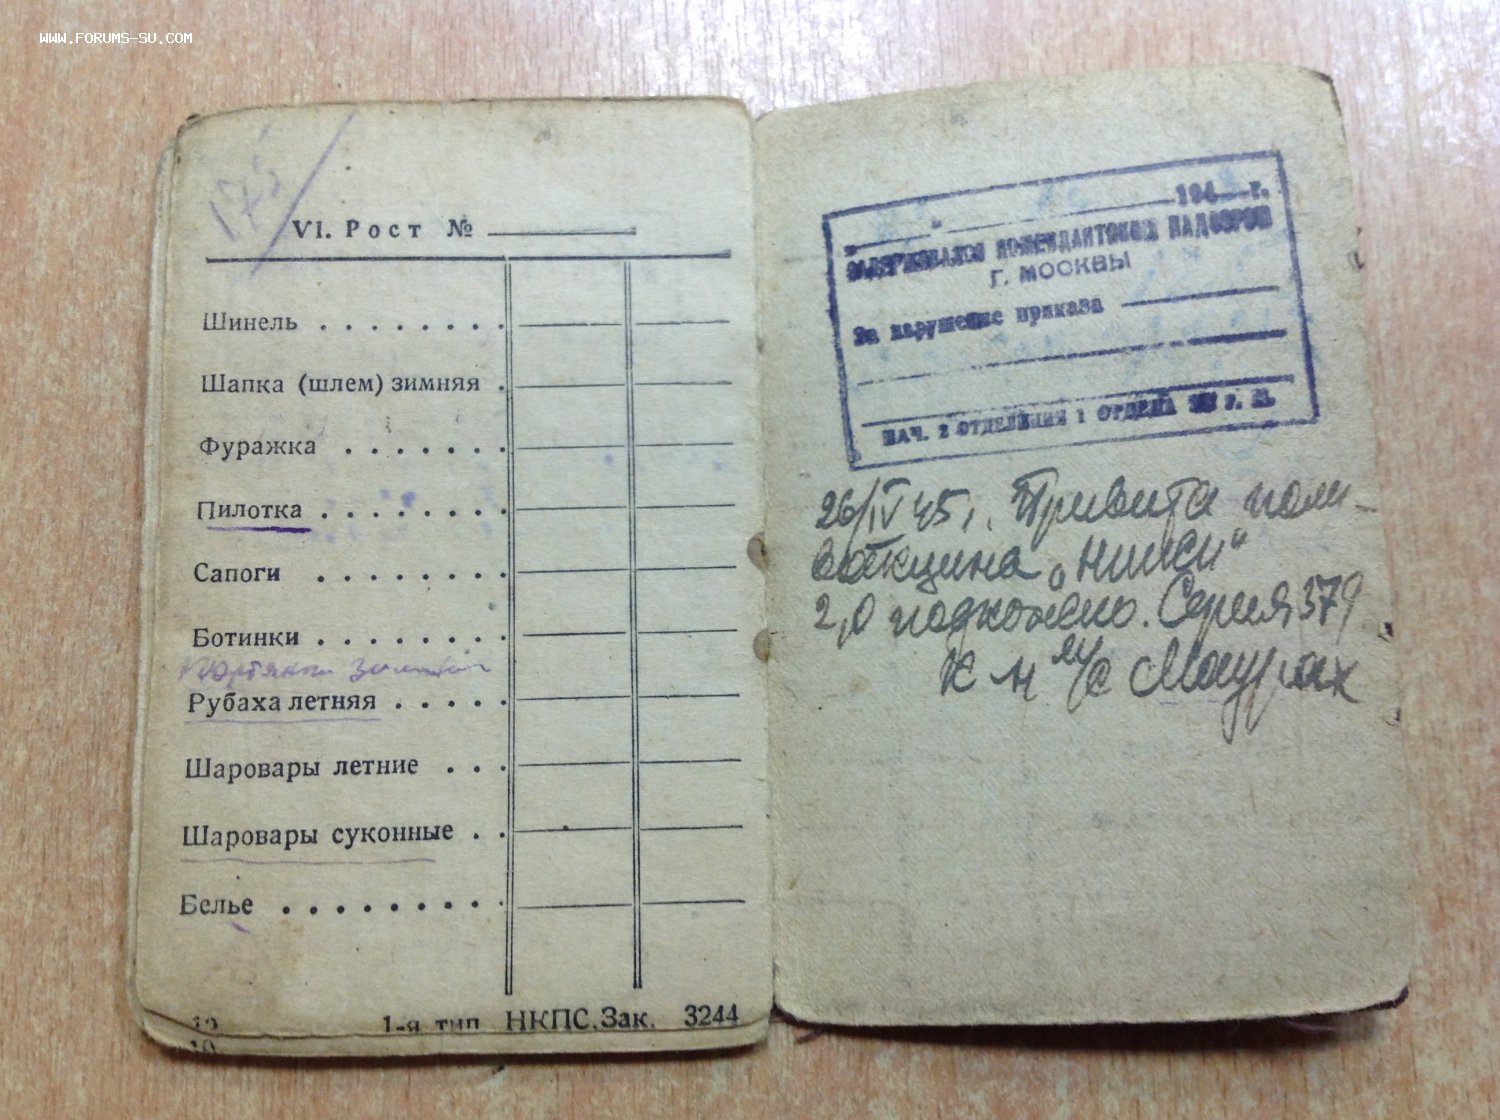 WWW.FORUMS-SU.COM
175
VI. Рост №
Шинель
Шапка (шлем) зимняя
Фуражка
Пилотка
Сапоги
Ботинки
Портянки зимние
Рубаха летняя
Шаровары летние
Шаровары суконные
Белье
12
1-я тип НКПС. Зак. 3244
10
194 г.
ЗАДЕРЖИВАЛСЯ КОМЕНДАНТСКИМ НАДЗОРОМ
Г. МОСКВЫ
За нарушение приказа
НАЧ. 2 ОТДЕЛЕНИЯ 1 ОТДЕЛА Г. М.
26/IV 45 г. Привита поли-
вакцина „НИИСИ"
2,0 подкожно. Серия 379
К-н м/с